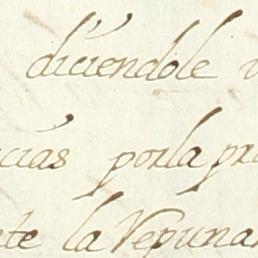 diciendole
cias por la pr
te la Vepunar